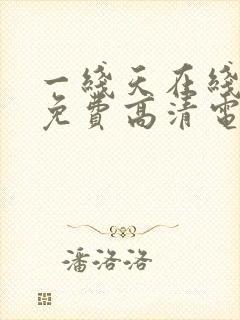 一綫天在綫
免費高清電
潘洛洛